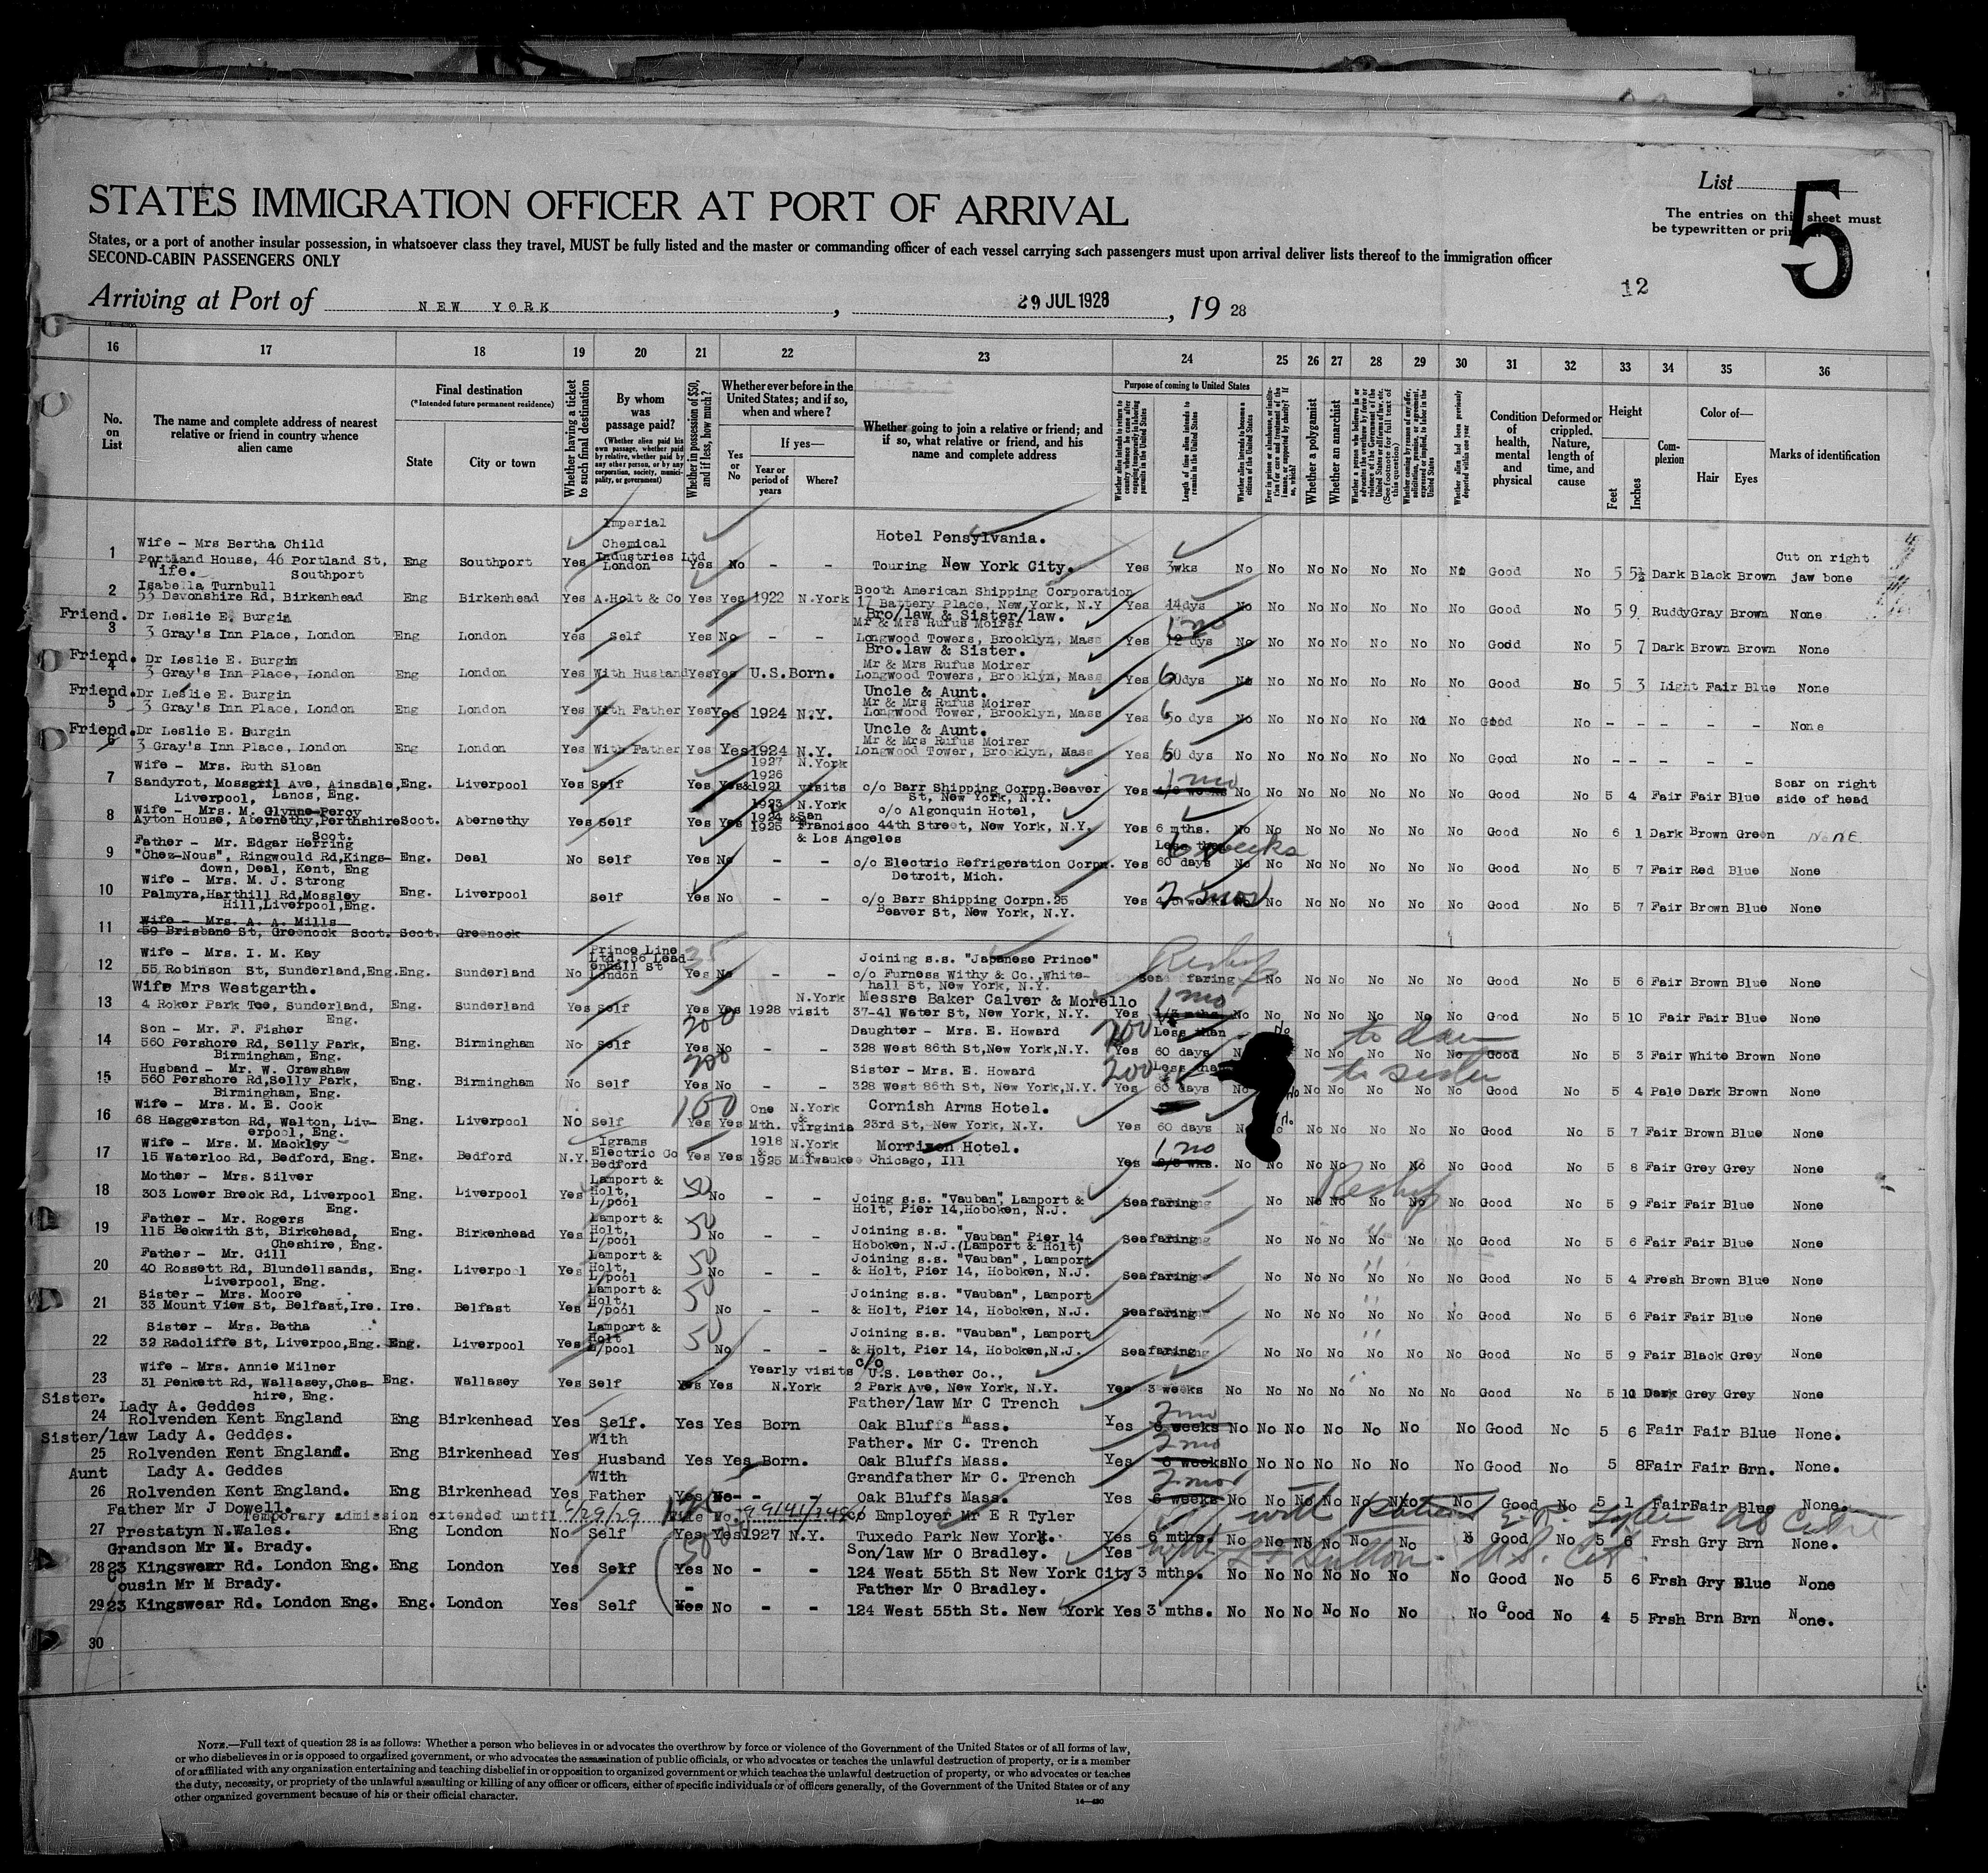 List
5
The entries on this sheet must
be typewritten or
STATES IMMIGRATION OFFICER AT PORT OF ARRIVAL
States, or a port of another insular possession, in whatsoever class they travel, MUST be fully listed and the master or commanding officer of each vessel carrying such passengers must upon arrival deliver lists thereof to the immigration officer
SECOND-CABIN PASSENGERS ONLY
12
Arriving at Port of NEW YORK, 29 JUL 1928, 19 28
16 17 18 19 20 21 22 23 24 25 26 27 28 29 30 31 32 33 34 35 36
No. on List
The name and complete address of nearest relative or friend in country whence alien came
Final destination
(*Intended future permanent residence)
State
City or town
Whether having a ticket to such final destination
By whom was passage paid?
(Whether alien paid his own passage, whether paid by relative, whether paid by any other person, or by any corporation, society, municipality, or government)
Whether in possession of $50, and if less, how much?
Whether ever before in the United States; and if so, when and where?
Yes or No
If yes—
Year or period of years
Where?
Whether going to join a relative or friend; and if so, what relative or friend, and his name and complete address
Purpose of coming to United States
Whether alien intends to return to country whence he came after engaging temporarily in laboring pursuits in the United States
Length of time alien intends to remain in the United States
Whether alien intends to become a citizen of the United States
Ever in prison or almshouse, or institution for care and treatment of the insane, or supported by charity? If so, which?
Whether a polygamist
Whether an anarchist
Whether a person who believes in or advocates the overthrow by force or violence of the Government of the United States or all forms of law, etc. (See footnote for full text of this question)
Whether coming by reason of any offer, solicitation, promise, or agreement, expressed or implied, to labor in the United States
Whether alien had been previously deported within one year
Condition of health, mental and physical
Deformed or crippled. Nature, length of time, and cause
Height
Feet
Inches
Complexion
Color of—
Hair
Eyes
Marks of identification
1 Wife - Mrs Bertha Child
Portland House, 46 Portland St, Southport Eng Southport Yes Imperial Chemical Industries Ltd London Yes No - - Hotel Pensylvania. Touring New York City. Yes 3wks No No No No No No No Good No 5 5½ Dark Black Brown Cut on right jaw bone
2 Wife. Isabella Turnbull
53 Devonshire Rd, Birkenhead Eng Birkenhead Yes A.Holt & Co Yes Yes 1922 N.York Booth American Shipping Corporation 17 Battery Place, New York, N.Y Yes 14dys No No No No No No No Good No 5 9 Ruddy Gray Brown None
3 Friend. Dr Leslie E. Burgin
3 Gray's Inn Place, London Eng London Yes Self Yes No - - Bro/law & Sister/law. Mr & Mrs Rufus Moirer Longwood Towers, Brooklyn, Mass Yes 12 dys 1 mo No No No No No No No Good No 5 7 Dark Brown Brown None
4 Friend. Dr Leslie E. Burgin
3 Gray's Inn Place, London Eng London Yes With Husband Yes Yes U.S.Born. Bro.law & Sister. Mr & Mrs Rufus Moirer Longwood Towers, Brooklyn, Mass Yes 60dys No No No No No No No Good No 5 3 Light Fair Blue None
5 Friend. Dr Leslie E. Burgin
3 Gray's Inn Place, London Eng London Yes With Father Yes Yes 1924 N.Y. Uncle & Aunt. Mr & Mrs Rufus Moirer Longwood Tower, Brooklyn, Mass Yes 60 dys No No No No No No No Good No - - - - - None
6 Friend. Dr Leslie E. Burgin
3 Gray's Inn Place, London Eng London Yes With Father Yes Yes 1924 N.Y. Uncle & Aunt. Mr & Mrs Rufus Moirer Longwood Tower, Brooklyn, Mass Yes 60 dys No No No No No No No Good No - - - - -
7 Wife - Mrs. Ruth Sloan
Sandyrot, Mossgril Ave, Ainsdale, Liverpool, Lancs, Eng. Eng. Liverpool Yes Self Yes Yes 1927 1926 &1921 N.York visits c/o Barr Shipping Corpn.Beaver St, New York, N.Y. Yes 1 mo No No No No No No No Good No 5 4 Fair Fair Blue Scar on right side of head
8 Wife - Mrs. M. Glynne-Percy
Ayton House, Abernethy, Perthshire Scot. Scot. Abernethy Yes Self Yes Yes 1923 1924 & 1925 N.York San Francisco & Los Angeles c/o Algonquin Hotel, 44th Street, New York, N.Y. Yes 6 mths. No No No No No No No Good No 6 1 Dark Brown Green None
9 Father - Mr. Edgar Herring
"Chez-Nous", Ringwould Rd, Kingsdown, Deal, Kent, Eng Eng. Deal No Self Yes No - - c/o Electric Refrigeration Corpn. Detroit, Mich. Yes Less than 60 days 6 weeks No No No No No No Good No 5 7 Fair Red Blue None
10 Wife - Mrs. M. J. Strong
Palmyra, Harthill Rd, Mossley Hill, Liverpool, Eng. Eng. Liverpool Self Yes No - - c/o Barr Shipping Corpn. 25 Beaver St, New York, N.Y. Yes 2 mos No No No No No No No Good No 5 7 Fair Brown Blue None
11 Wife - Mrs. A. A. Mills
59 Brisbane St, Greenock Scot. Scot. Greenock
12 Wife - Mrs. I. M. Kay
55 Robinson St, Sunderland, Eng. Eng. Sunderland No Prince Line Ltd, 56 Leadenhall St London 35 Yes No - - Joining s.s. "Japanese Prince" c/o Furness Withy & Co., Whitehall St, New York, N.Y. Sea faring Reship No No No No No No Good No 5 6 Fair Brown Blue None
13 Wife Mrs Westgarth.
4 Roker Park Tce, Sunderland, Eng. Eng. Sunderland Yes Self Yes Yes 1928 N.York visit Messrs Baker Calver & Morello 37-41 Water St, New York, N.Y. Yes 1 mo No No No No No No No Good No 5 10 Fair Fair Blue None
14 Son - Mr. F. Fisher
560 Pershore Rd, Selly Park, Birmingham, Eng. Eng. Birmingham No Self 200 Yes No - - Daughter - Mrs. E. Howard 328 West 86th St, New York, N.Y. 200 Yes Less than 60 days No No No to dau No No No No Good No 5 3 Fair White Brown None
15 Husband - Mr. W. Crawshaw
560 Pershore Rd, Selly Park, Birmingham, Eng. Eng. Birmingham No Self 200 Yes No - - Sister - Mrs. E. Howard 328 West 86th St, New York, N.Y. 200 Yes Less than 60 days No No No No to sister No No No Good No 5 4 Pale Dark Brown None
16 Wife - Mrs. M. E. Cook
68 Haggerston Rd, Walton, Liverpool, Eng. Eng. Liverpool No Self 100 Yes Yes One Mth. N.York & Virginia Cornish Arms Hotel. 23rd St, New York, N.Y. Yes 60 days No No No No No No Good No 5 7 Fair Brown Blue None
17 Wife - Mrs. M. Mackley
15 Waterloo Rd, Bedford, Eng. Eng. Bedford N.Y. Igrams Electric Co Bedford Yes Yes 1918 & 1925 N.York & Milwaukee Morrison Hotel. Chicago, Ill Yes 1 mo No No No No No No No Good No 5 8 Fair Grey Grey None
18 Mother - Mrs. Silver
303 Lower Breck Rd, Liverpool Eng. Eng. Liverpool Yes Lamport & Holt, L/pool 50 No - - Joing s.s. "Vauban", Lamport & Holt, Pier 14, Hoboken, N.J. Seafaring No No No Reship No No No Good No 5 9 Fair Fair Blue None
19 Father - Mr. Rogers
115 Beckwith St, Birkehead, Cheshire, Eng. Eng. Birkenhead Yes Lamport & Holt, L/pool 50 No - - Joining s.s. "Vauban" Pier 14 Hoboken, N.J. (Lamport & Holt) Seafaring No No No " No No No Good No 5 6 Fair Fair Blue None
20 Father - Mr. Gill
40 Rossett Rd, Blundellsands, Liverpool, Eng. Eng. Liverpool Yes Lamport & Holt, L/pool 50 No - - Joining s.s. "Vauban", Lamport & Holt, Pier 14, Hoboken, N.J. Seafaring No No No " No No No Good No 5 4 Fresh Brown Blue None
21 Sister - Mrs. Moore
33 Mount View St, Belfast, Ire. Ire. Belfast Yes Lamport & Holt, L/pool 50 No - - Joining s.s. "Vauban", Lamport & Holt, Pier 14, Hoboken, N.J. Seafaring No No No " No No No Good No 5 6 Fair Fair Blue None
22 Sister - Mrs. Batha
32 Radcliffe St, Liverpoo, Eng. Eng. Liverpool Yes Lamport & Holt L/pool 50 No - - Joining s.s. "Vauban", Lamport & Holt, Pier 14, Hoboken, N.J. Seafaring No No No " No No No Good No 5 9 Fair Black Grey None
23 Wife - Mrs. Annie Milner
31 Penkett Rd, Wallasey, Cheshire, Eng. Eng. Wallasey Yes Self Yes Yes Yearly visits N.York c/o U.S. Leather Co., 2 Park Ave, New York, N.Y. Yes 3 weeks No No No No No No No Good No 5 10 Dark Grey Grey None
24 Sister. Lady A. Geddes
Rolvenden Kent England Eng Birkenhead Yes Self. Yes Yes Born Father/law Mr C Trench Oak Bluffs Mass. Yes 6 weeks 2 mo No No No No No No No No Good No 5 6 Fair Fair Blue None.
25 Sister/law Lady A. Geddes.
Rolvenden Kent England. Eng Birkenhead Yes With Husband Yes Yes Born. Father. Mr C. Trench Oak Bluffs Mass. Yes 6 weeks 2 mo No No No No No No No No Good No 5 8 Fair Fair Brn. None.
26 Aunt Lady A. Geddes
Rolvenden Kent England. Eng Birkenhead Yes With Father Yes No - - Grandfather Mr C. Trench Oak Bluffs Mass. Yes 6 weeks 2 mos No No No No No No No Good No 5 1 Fair Fair Blue None.
27 Father Mr J Dowell.
Temporary admission extended until 1/29/29 File No.
Prestatyn N.Wales. Eng London No Self Yes Yes 1927 N.Y. c/o Employer Mr E R Tyler Tuxedo Park New York. Yes 6 mths. No No No No No No with Good No 5 6 Frsh Gry Brn None.
28 Grandson Mr M. Brady.
23 Kingswear Rd. London Eng. Eng London Yes Self 500 Yes No - - Son/law Mr O Bradley. 124 West 55th St New York City Yes 3 mths. No No No No No No No Good No 5 6 Frsh Gry Blue None
29 Cousin Mr M Brady.
23 Kingswear Rd. London Eng. Eng. London Yes Self Yes No - - Father Mr O Bradley. 124 West 55th St. New York Yes 3 mths. No No No No No No No Good No 4 5 Frsh Brn Brn None.
30
NOTE.—Full text of question 28 is as follows: Whether a person who believes in or advocates the overthrow by force or violence of the Government of the United States or of all forms of law,
or who disbelieves in or is opposed to organized government, or who advocates the assassination of public officials, or who advocates or teaches the unlawful destruction of property, or is a member
of or affiliated with any organization entertaining and teaching disbelief in or opposition to organized government or which teaches the unlawful destruction of property, or who advocates or teaches
the duty, necessity, or propriety of the unlawful assaulting or killing of any officer or officers, either of specific individuals or of officers generally, of the Government of the United States or of any
other organized government because of his or their official character.
14—430